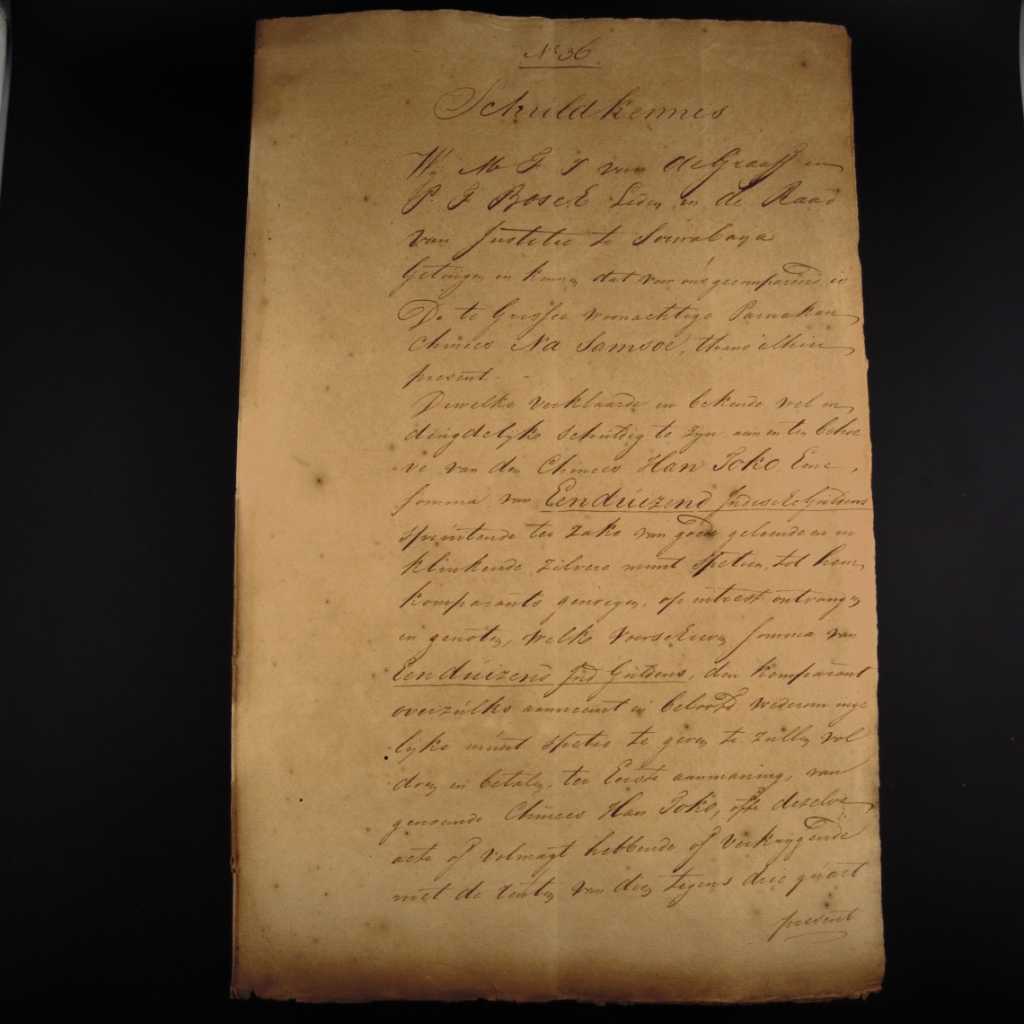 No 36
Schuldkennis
Wij Mr F J van de Graaff en
P. J Bosch Leden in de Raad
van Justitie te Sourabaya
Getuigen en kennen dat voor ons gecompareerd is
De te Grissee woonachtige Parnakan
Chinees Na Samsoe, thans alhier
present.
Dewelke verklaarde en bekende wel en
deugdelijke schuldig te zijn aan en ten behoe
ve van den Chinees Han Toko Eene
somma van Eenduizend Indische Guldens
spruitende ter zake van goede geleende en in
klinkende zilvere munt spetien, tot hem
komparants genoegen, op intrest ontvangen
en genoten, welke voorschreven somma van
Eenduizend Ind Guldens, den komparant
overzulks aanneemt en beloofd wederom inge
lijke munt spetie te geven te zullen vol
doen en betalen, ter Eerste aanmaning, van
genoemde Chinees Han Toko, ofte dezelve
acte of volmagt hebbende of verkrygende
met de renten van dien tegens drie quart
present